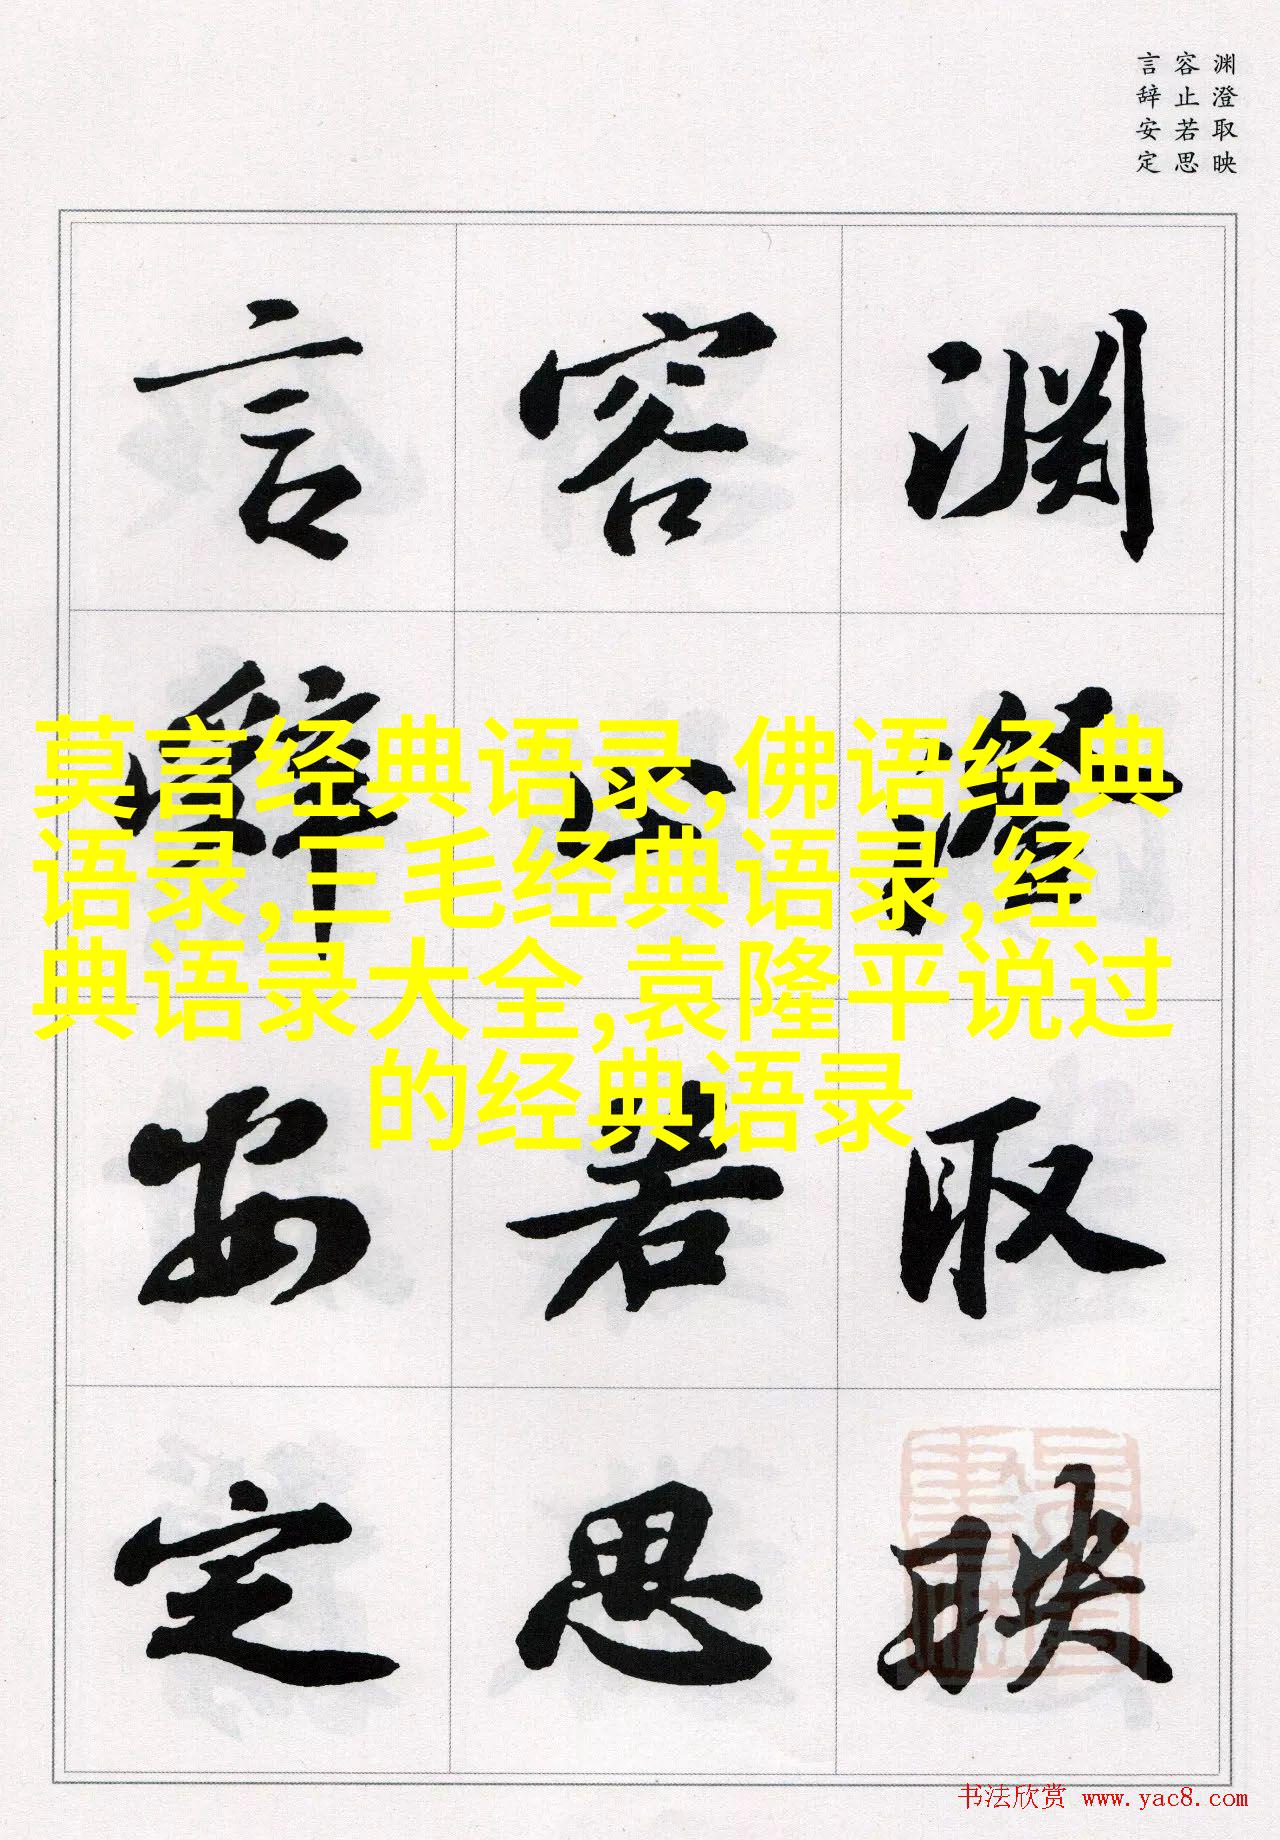 渊澄取映
容止若思
言辞安定
渊澄取映
容止若思
言辞安定
莫言经典语录,佛语经典
语录,三毛经典语录,经
典语录大全,袁隆平说过
的经典语录
书法欣赏 www.yac8.com